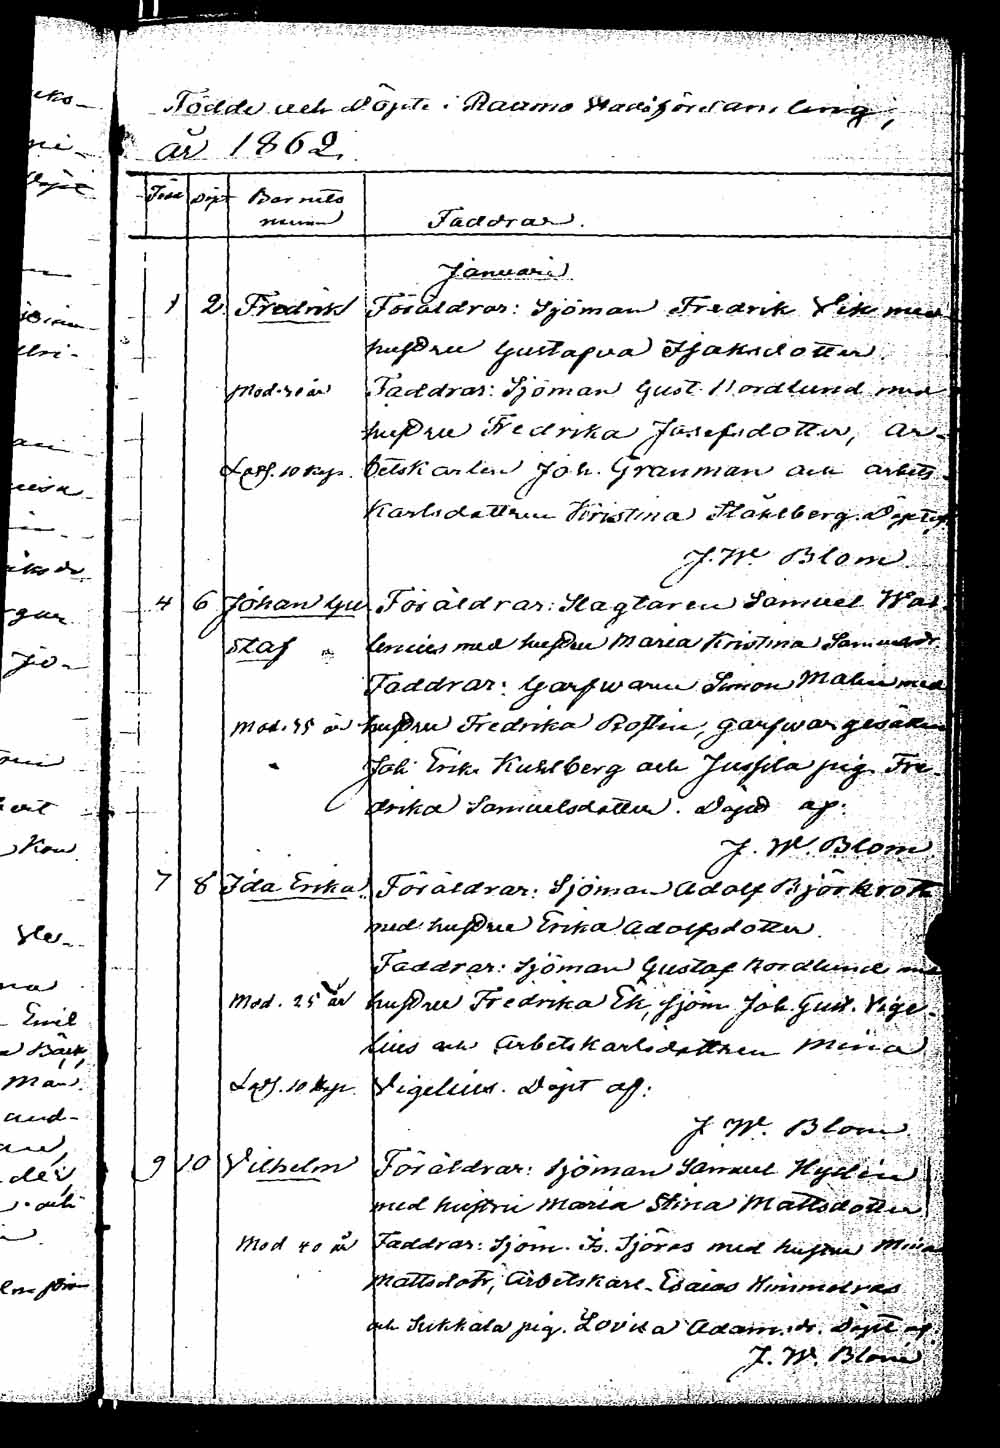 Födde och Döpte i Raumo Stadsförsamling,
år 1862.
Född Döpt Barnets namn Faddrar.
Januari
1 2 Fredrik Föräldrar: Sjöman Fredrik Vik med
hustru Gustafva Isaksdotter.
Mod. 30 år Faddrar: Sjöman Gust. Nordlund med
hustru Fredrika Josefsdotter, ar-
10 kop. betskarlen Joh. Granman och arbets-
karlsdottren Kristina Ståhlberg. Döpt af
J. W. Blom
4 6 Johan Gu- Föräldrar: Slagtaren Samuel Wal-
staf lenius med hustru Maria Kristina Samuelsdr.
Faddrar: Garfwaren Simon Malin med
Mod. 35 år hustru Fredrika garfwargesällen
Joh. Erik Kuhlberg och Jussila pig. Fre-
drika Samuelsdotter. Döpt af:
J. W. Blom
7 8 Ida Erika Föräldrar: Sjöman Adolf Björkroth
med hustru Erika Adolfsdotter.
Faddrar: Sjöman Gustaf Nordlund med
Mod. 25 år hustru Fredrika Ek, Sjöm. Joh. Gust. Vige-
lius och Arbetskarlsdottren Mina
10 kop. Vigelius. Döpt af:
J. W. Blom
9 10 Vilhelm Föräldrar: Sjöman Samuel Hydén
med hustru Maria Stina Mattsdotter
Mod 40 år Faddrar: Sjöm. Is. Sjöros med hustru Mina
Mattsdotr, Arbetskarl. Esaias Himmelroos
och Sukkala pig. Lovisa Adamsdr. Döpt af.
J. W. Blom